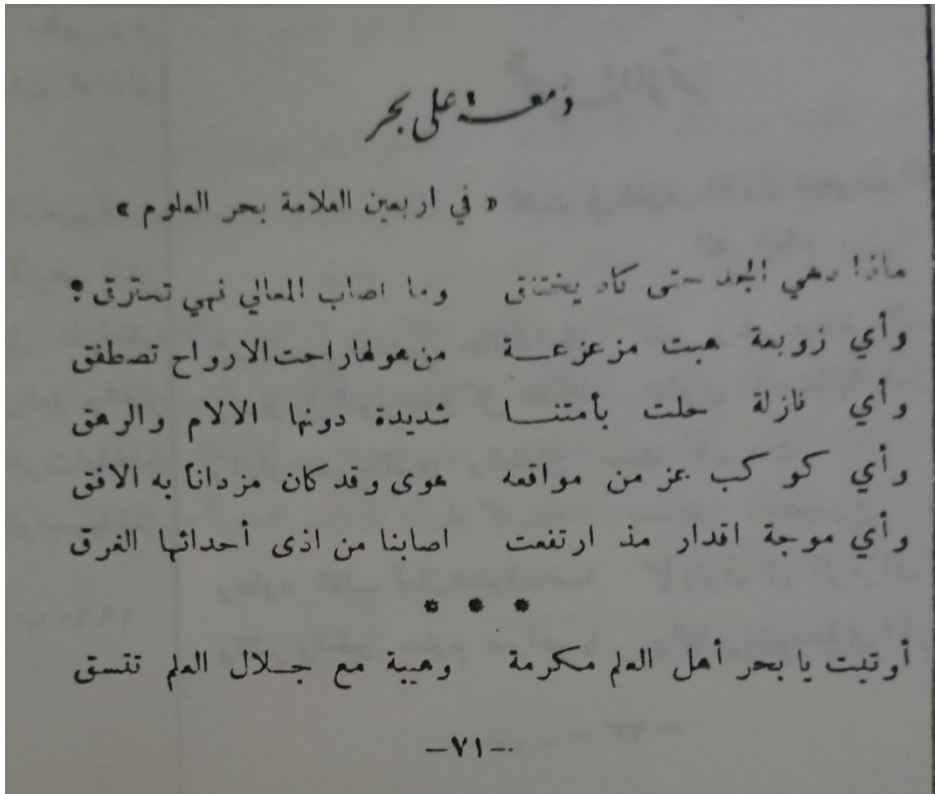 دمعة على بحر
« في اربعين العلامة بحر العلوم »
ماذا دهي المجد حتى كاد يختنق وما اصاب المعالي فهي تحترق ؟
وأي زوبعة هبت مزعزعة من هولها راحت الارواح تصطفق
وأي نازلة حلت بأمتنا شديدة دونها الالام والرهق
وأي كوكب عز من مواقعه هوى وقد كان مزداناً به الافق
وأي موجة اقدار مذ ارتفعت اصابنا من اذى أحداثها الغرق
* * *
أوتيت يا بحر أهل العلم مكرمة وهيبة مع جلال العلم تتسق
-٧١-